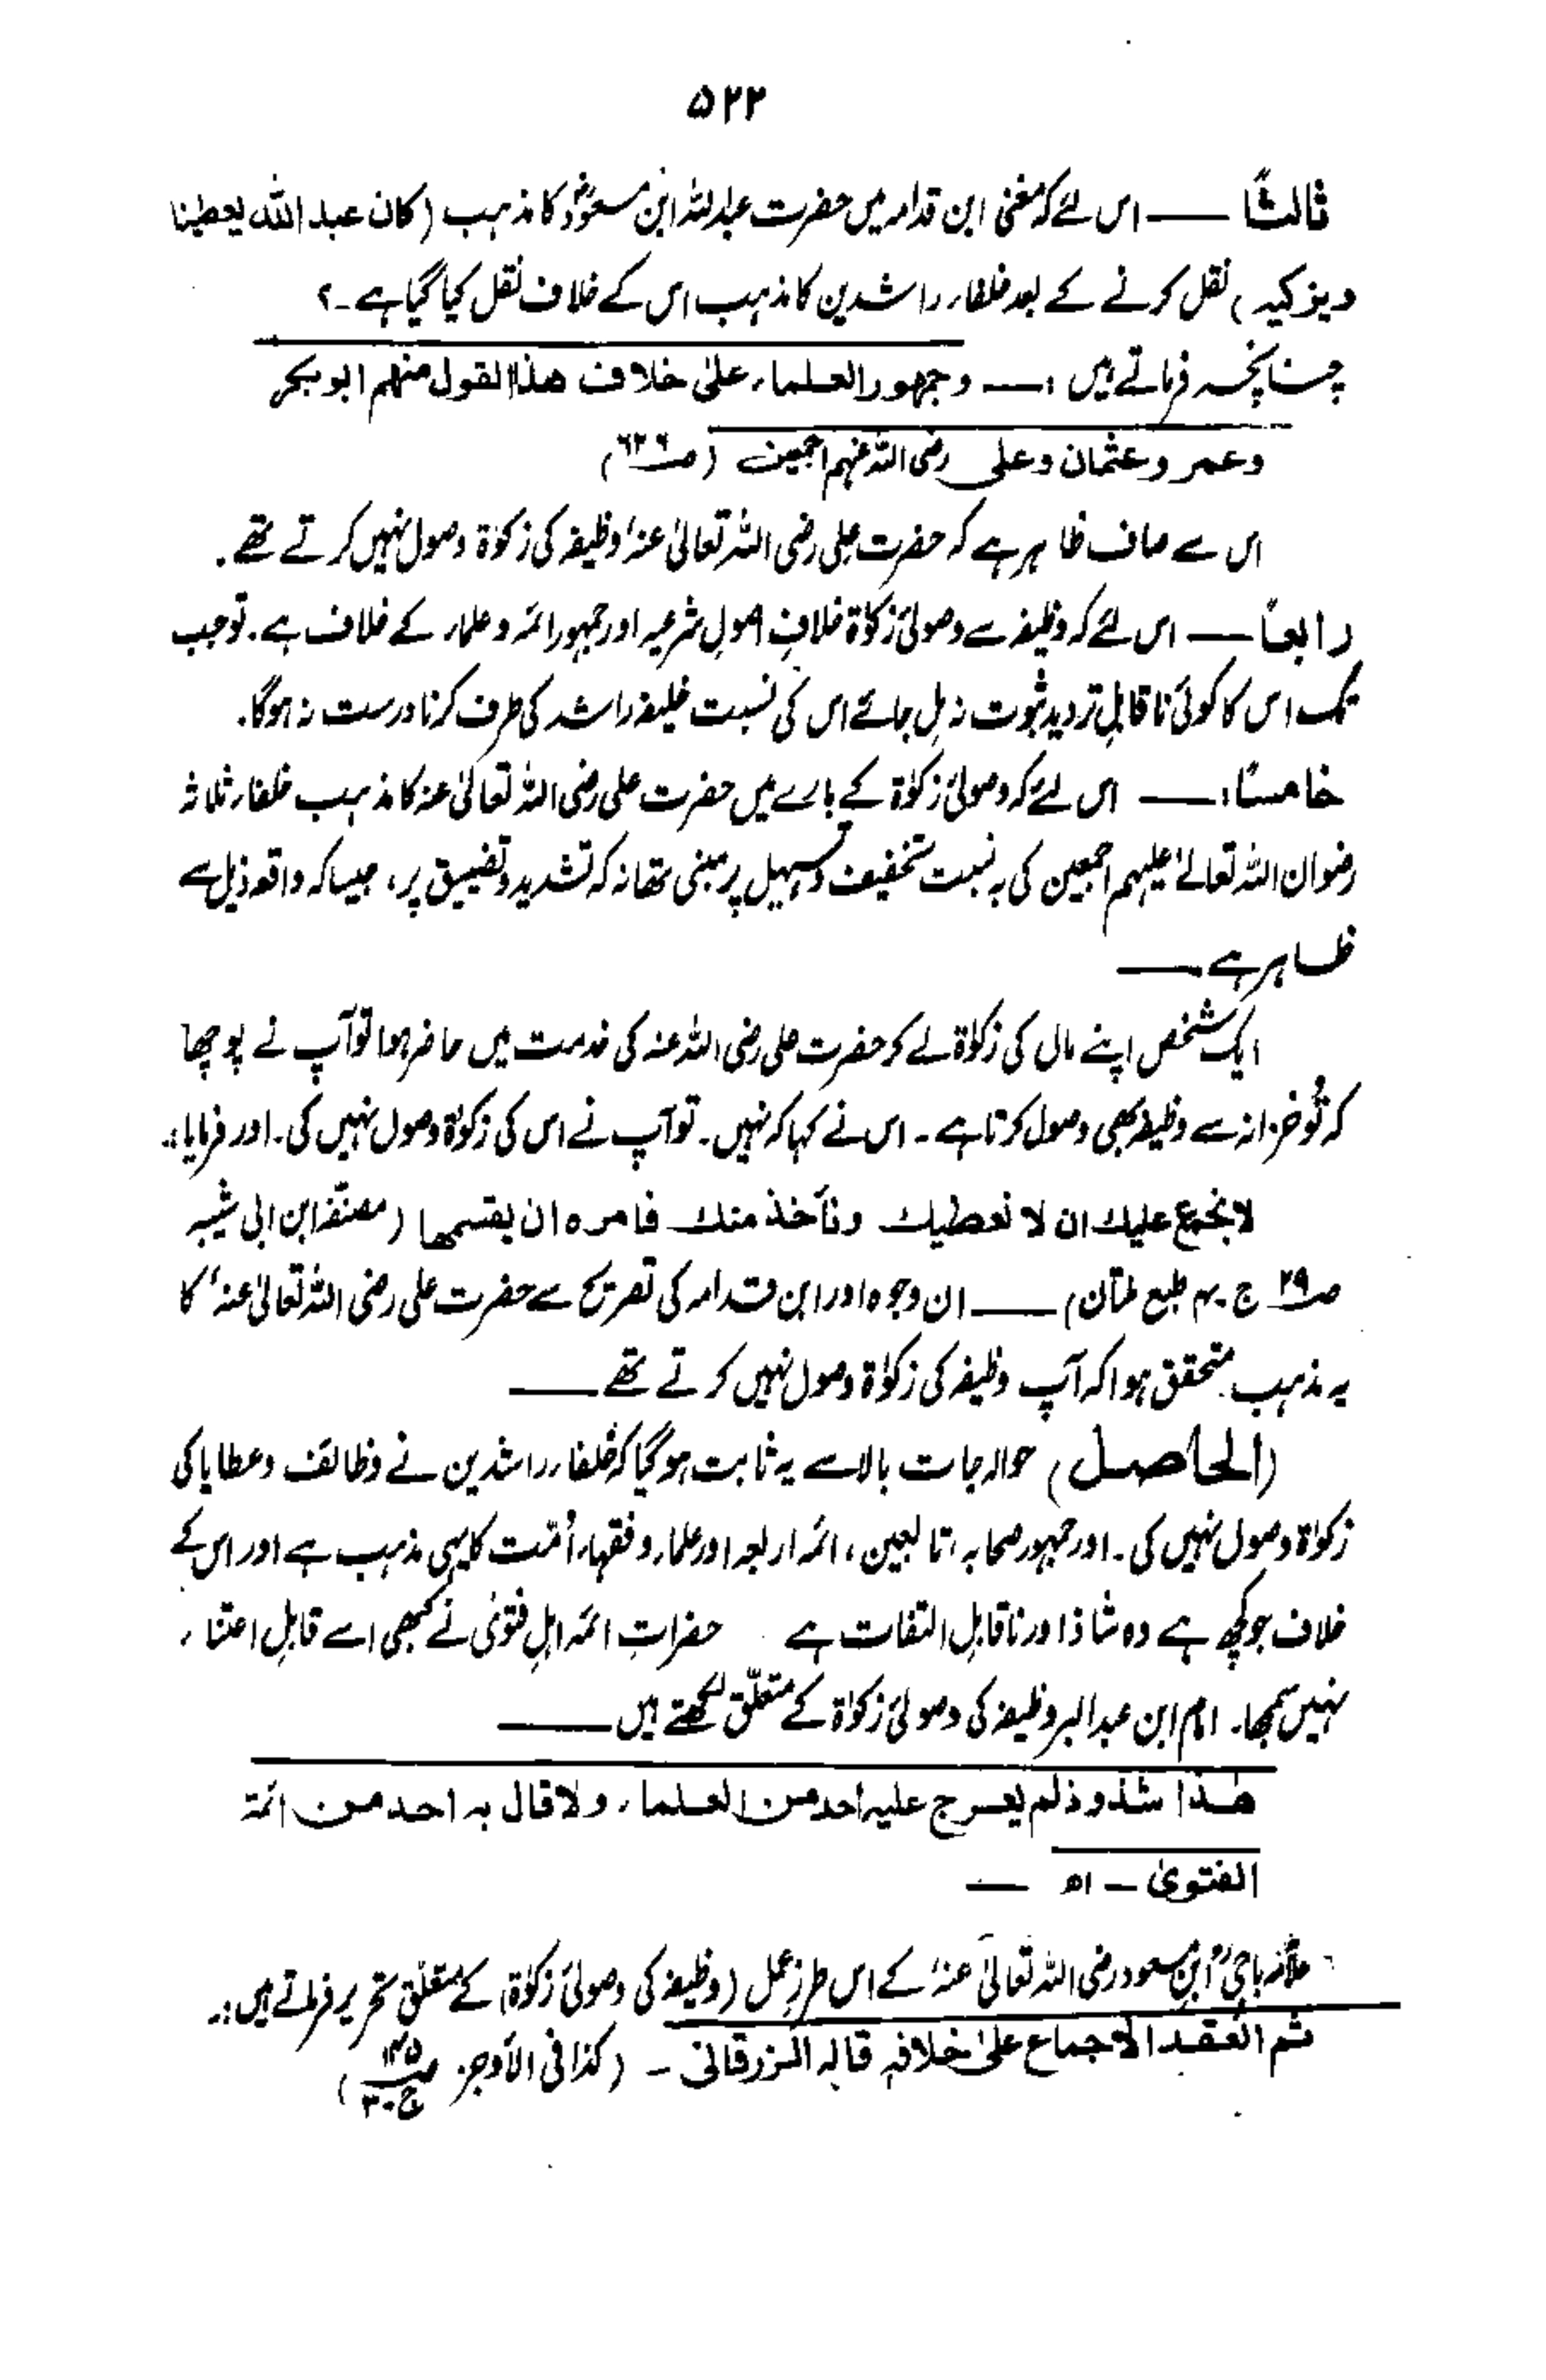 ۵۲۲
ثالثاً ـــــ اس لئے کہ مغنی ابن قدامہ میں حضرت عبداللہ ابن مسعودؓ کا مذہب (کان عبد اللہ یعطینا
ویزکیہ) نقل کرنے کے بعد خلفاء راشدین کا مذہب اس کے خلاف نقل کیا گیا ہے۔
چنانچہ فرماتے ہیں :ـــ وجمہور العلماء علیٰ خلاف ھذا القول منھم ابوبکر
وعمر وعثمان وعلی رضی اللہ عنہم اجمعین (صـ۶۲۶)
اس سے صاف ظاہر ہے کہ حضرت علی رضی اللہ تعالیٰ عنہٗ وظیفہ کی زکوٰۃ وصول نہیں کرتے تھے۔
رابعاً ـــــ اس لئے کہ وظیفہ سے وصولیٔ زکوٰۃ خلافِ اصولِ شرعیہ اور جمہور ائمہ و علماء کے خلاف ہے۔ تو جب
تک اس کا کوئی ناقابلِ تردید ثبوت نہ مِل جائے اس کی نسبت خلیفہ راشد کی طرف کرنا درست نہ ہوگا۔
خامساً :ـــــ اس لئے کہ وصولیٔ زکوٰۃ کے بارے میں حضرت علی رضی اللہ تعالیٰ عنہ کا مذہب خلفاء ثلاثہ
رضوان اللہ تعالیٰ علیہم اجمعین کی بہ نسبت تخفیف و تسہیل پر مبنی تھا نہ کہ تشدید و تضییق پر، جیسا کہ واقعہ ذیل سے
ظاہر ہے ـــــ
ایک شخص اپنے مال کی زکوٰۃ لے کر حضرت علی رضی اللہ عنہ کی خدمت میں حاضر ہوا تو آپ نے پوچھا
کہ تُو خزانہ سے وظیفہ بھی وصول کرتا ہے۔ اس نے کہا کہ نہیں۔ تو آپ نے اس کی زکوٰۃ وصول نہیں کی۔ اور فرمایا:۔
لا نجمع علیك ان لا نعطیك ونأخذ منك فامرہ ان یقسمھا (مصنّفہ ابن ابی شیبہ
صـ۲۹ ج ۴ طبع ملتان) ـــــ ان وجوہ اور ابن قدامہ کی تصریح سے حضرت علی رضی اللہ تعالیٰ عنہٗ کا
یہ مذہب متحقق ہوا کہ آپ وظیفہ کی زکوٰۃ وصول نہیں کرتے تھے ـــــ
(الحاصل) حوالہ جات بالا سے یہ ثابت ہو گیا کہ خلفاء راشدین نے وظائف و عطایا کی
زکوٰۃ وصول نہیں کی۔ اور جمہور صحابہ، تابعین، ائمہ اربعہ اور علماء و فقہاء اُمّت کا یہی مذہب ہے اور اس کے
خلاف جو کچھ ہے وہ شاذ اور ناقابلِ التفات ہے حضراتِ ائمہ اہلِ فتویٰ نے کبھی اسے قابلِ اعتناء
نہیں سمجھا۔ امام ابن عبدالبر وظیفہ کی وصولیٔ زکوٰۃ کے متعلّق لکھتے ہیں ـــــ
ھٰذا شذوذ لم یعرج علیہ احد من العلماء ولا قال بہ احد من ائمۃ
الفتویٰ ـ اھ ـــ
علّامہ باجیؒ ابنِ مسعود رضی اللہ تعالیٰ عنہٗ کے اس طرزِ عمل (وظیفہ کی وصولیٔ زکوٰۃ) کے متعلّق تحریر فرماتے ہیں:۔
ثم انعقد الاجماع علیٰ خلافہٖ قالہ الزرقانی ـ (کذا فی الأوجز صـ۱۴۵ ج ۳)